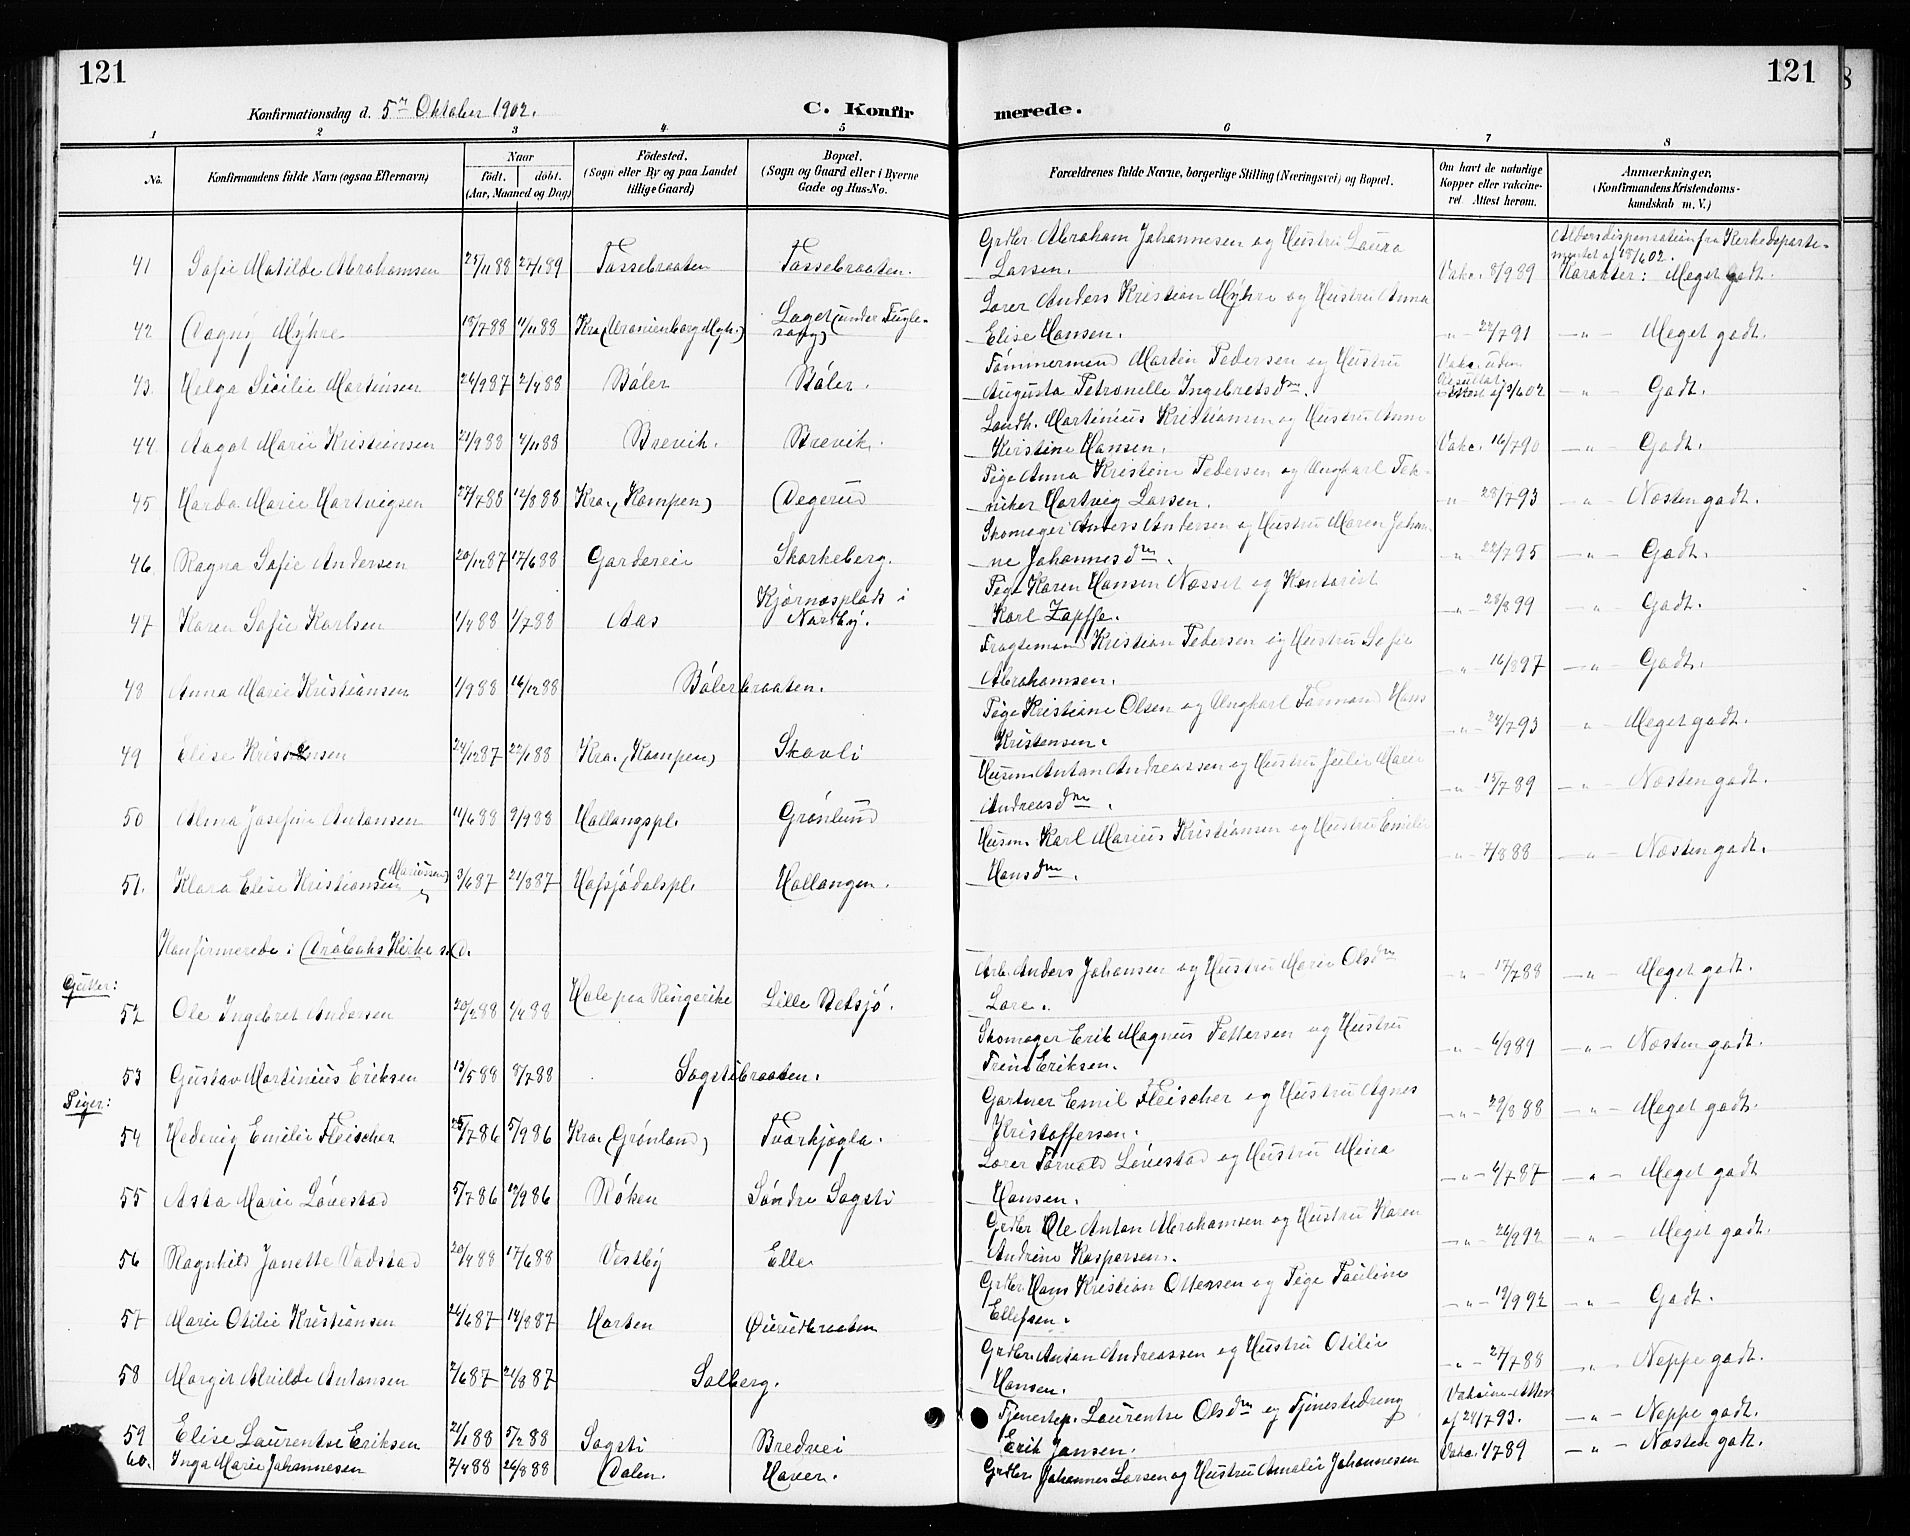 121
121
Konfirmationsdag d. 5te Oktober 1902.
C. Konfir
merede.
1 2 3 4 5 6 7 8
No.
Konfirmandens fulde Navn (ogsaa Efternavn)
Naar
födt. döbt.
(Aar, Maaned og Dag)
Födested.
(Sogn eller By og paa Landet
tillige Gaard)
Bopæl.
(Sogn og Gaard eller i Byerne
Gade og Hus-No.
Forældrenes fulde Navne, borgerlige Stilling (Næringsvei) og Bopæl.
Om havt de naturlige
Kopper eller vakcine-
ret. Attest herom.
Anmærkninger.
(Konfirmandens Kristendoms-
kundskab m. V.)
41 Sofie Matilde Abrahamsen 28/11 88 27/1 89 Tassebraaten Tassebraaten.
Grdbr. Abraham Johannesen og Hustru Laura
Larsen. Vakc. 8/9 89
Aldersdispensation fra Kirkedeparte-
mentet af 18/6 02.
Karakter: Meget godt.
42 Dagny Myhre 18/7 88 11/11 88 Kra. (Uranienborg Mgh.) Laget (under Fugle-
sang)
Lærer Anders Kristian Myhre og Hustru Anna
Elise Hansen. -"- 22/7 91 -"- Meget godt.
43. Helga Sicilie Martinsen 26/9 87 2/4 88 Bøler Bøler.
Tømmermand Martin Pedersen og Hustru
Augusta Petronelle Ingebretsdtr.
Vakc. uden
Resultat.
Attest af 3/6 02 -"- Godt.
44 Aagot Marie Kristiansen 21/9 88 4/11 88 Brevik. Brevik.
Landh. Martinius Kristiansen og Hustru Anne
Kirstine Hansen. Vakc. 16/7 90 -"- Godt.
45 Harda Marie Hartvigsen 27/7 88 12/8 88 Kra. (Kampen) Degerud
Pige Anna Kristine Pedersen og Ungkarl Tek-
niker Hartvig Larsen. " 28/7 93 -"- Næsten godt.
46 Ragna Sofie Andersen 20/12 87 17/6 88 Garderveie Skorkeberg.
Skomager Anders Andersen og Hustru Maren Johan-
ne Johannesdtr. " 22/7 95 -"- Godt.
47 Karen Sofie Karlsen 1/4 88 1/7 88 Aas Kjærnæsplads i
Nordby.
Pige Karen Hansen Næsset og Kontorist
Karl Zapffe. -"- 28/8 99 -"- Godt.
48 Anna Marie Kristiansen 1/9 88 16/12 88 Bølerbraaten.
Fragtemand Kristian Pedersen og Hustru Sofie
Abrahamsen. -"- 16/8 97 -"- Godt.
49 Elise Kristensen 24/12 87 22/1 88 Kra. (Kampen) Skovli
Pige Kristiane Olsen og Ungkarl Formand Hans
Kristensen. -"- 24/7 93 -"- Meget godt.
50 Alma Josefine Antonsen 11/6 88 9/9 88 Hallangspl. Grønlund
Husm. Anton Andreassen og Hustru Julie Marie
Andreasdtr. -"- 13/7 89 -"- Næsten godt.
51. Klara Elise Kristiansen (Mariussen) 3/6 87 21/8 87 Hofsjødalspl. Hallangen.
Husm. Karl Marius Kristiansen og Hustru Emilie
Hansdtr. -"- 7/8 88 -"- Næsten godt.
Konfirmerede i Drøbaks Kirke s. D.
Gutter:
52 Ole Ingebret Andersen 20/2 88 1/4 88 Hole paa Ringerike Lille Belsjø.
Arb. Anders Johansen og Hustru Marie Olsdtr
Lare. -"- 17/7 88 -"- Meget godt.
53 Gustav Martinius Eriksen 13/5 88 8/7 88 Sogstibraaten.
Skomager Erik Magnus Pettersen og Hustru
Trine Eriksen. -"- 6/9 89 -"- Næsten godt.
Piger:
54 Hedevig Emilie Fleischer 25/7 86 5/9 86 Kra. (Grønland) Tværkjøgla.
Gartner Emil Fleischer og Hustru Agnes
Kristoffersen. -"- 29/8 88 -"- Meget godt.
55 Asta Marie Løvestad 5/7 86 19/9 86 Røken Søndre Sogsti
Lærer Torvald Løvestad og Hustru Mina
Hansen. -"- 6/7 87 -"- Meget godt
56 Ragnhild Janette Vadstad 20/4 88 17/6 88 Vestby Elle
Grdbr. Ole Anton Abrahamsen og Hustru Karen
Andrine Kaspersen. -"- 26/9 92 -"- Meget godt.
57 Marie Otilie Kristiansen 26/6 87 14/8 87 Horten Øierudbraaten
Grdbr. Hans Kristian Ottersen og Pige Pauline
Ellefsen. -"- 19/9 92 -"- Godt.
58 Margit Alvilde Antonsen 2/6 87 21/8 87 Solberg.
Grdbr. Anton Andreassen og Hustru Otilie
Hansen. -"- 24/7 88 -"- Neppe godt.
59 Elise Laurentse Eriksen 21/1 88 5/2 88 Sogsti Bredvei
Tjenestep. Laurentse Olsdtr og Tjenestedreng
Erik Jansen. Vakcine-Attest
af 24/7 93. -"- Neppe godt.
60. Inga Marie Johannesen 2/4 88 26/8 88 Dalen. Haver.
Grdbr. Johannes Larsen og Hustru Amalie Johannesen Vakc. 4/7 89 -"- Næsten godt.